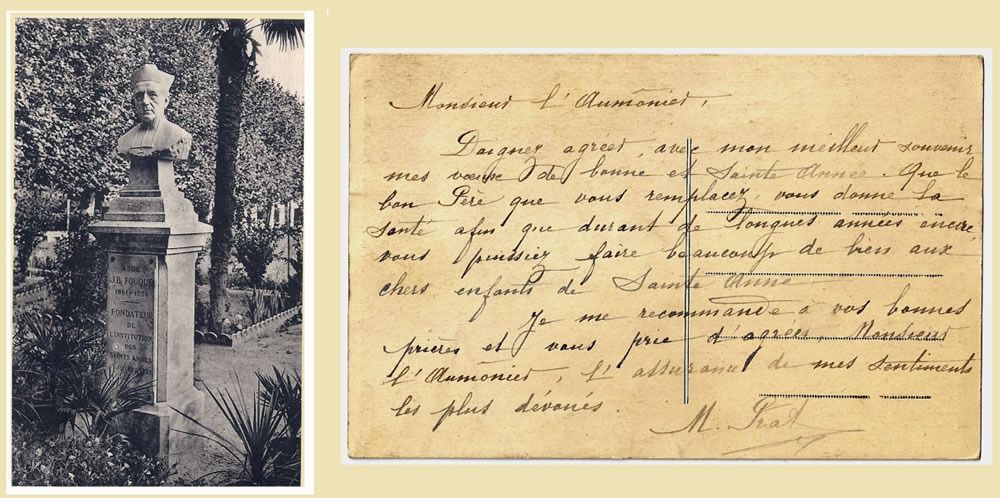 ABBÉ
J.B. FOUQUE
1851-1926
FONDATEUR
DE
L'INSTITUTION
DES
SAINTS ANGES
Monsieur l'Aumônier,
Daignez agréer, avec mon meilleur souvenir
mes vœux de bonne et Sainte Année. Que le
bon Père que vous remplacez, vous donne la
santé afin que durant de longues années encore,
vous puissiez faire beaucoup de bien aux
chers enfants de Sainte Anne.
Je me recommande à vos bonnes
prières et vous prie d'agréer, Monsieur
l'Aumônier, l'assurance de mes sentiments
les plus dévoués.
M. Prat